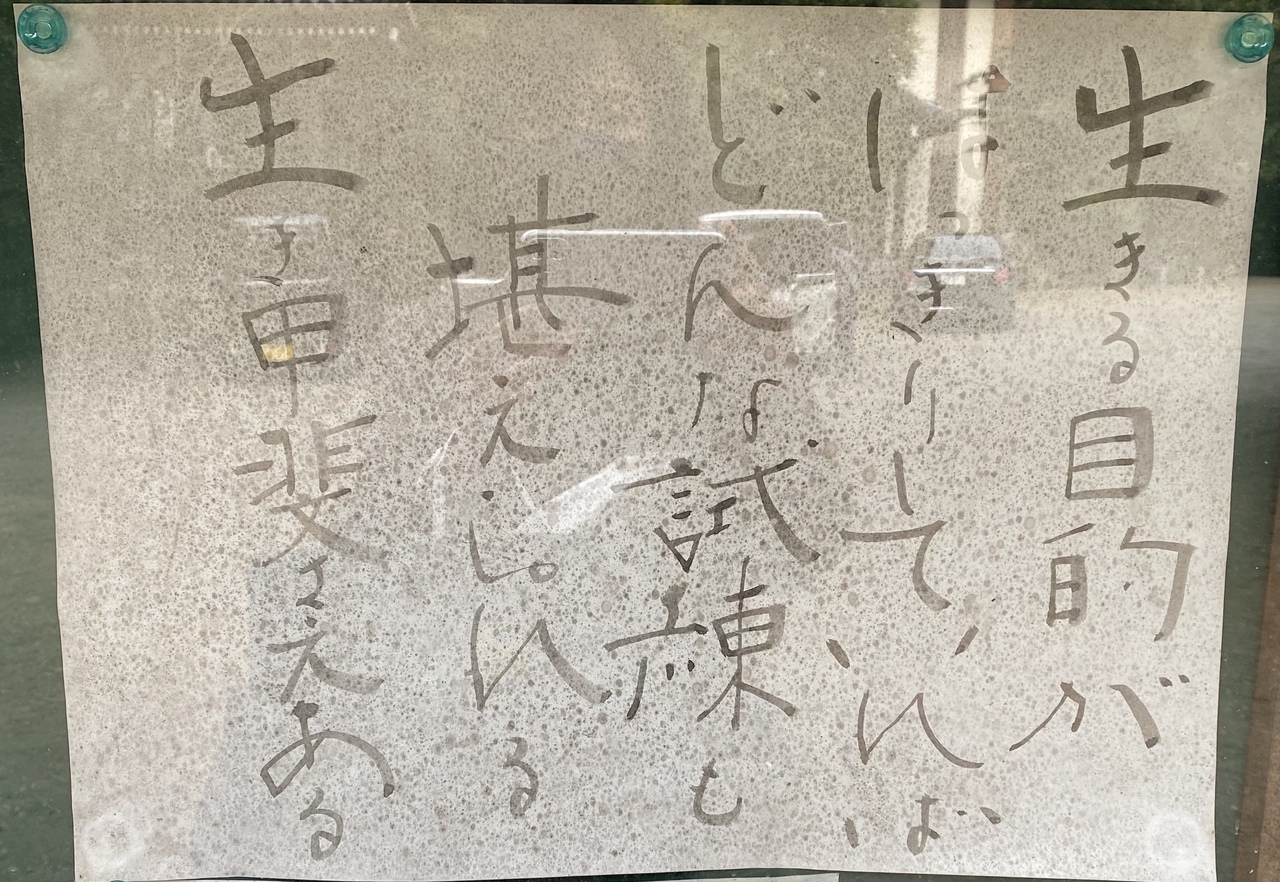 生きる目的が
はっきりしていれば
どんな試練も
堪えられる
生き甲斐さえある